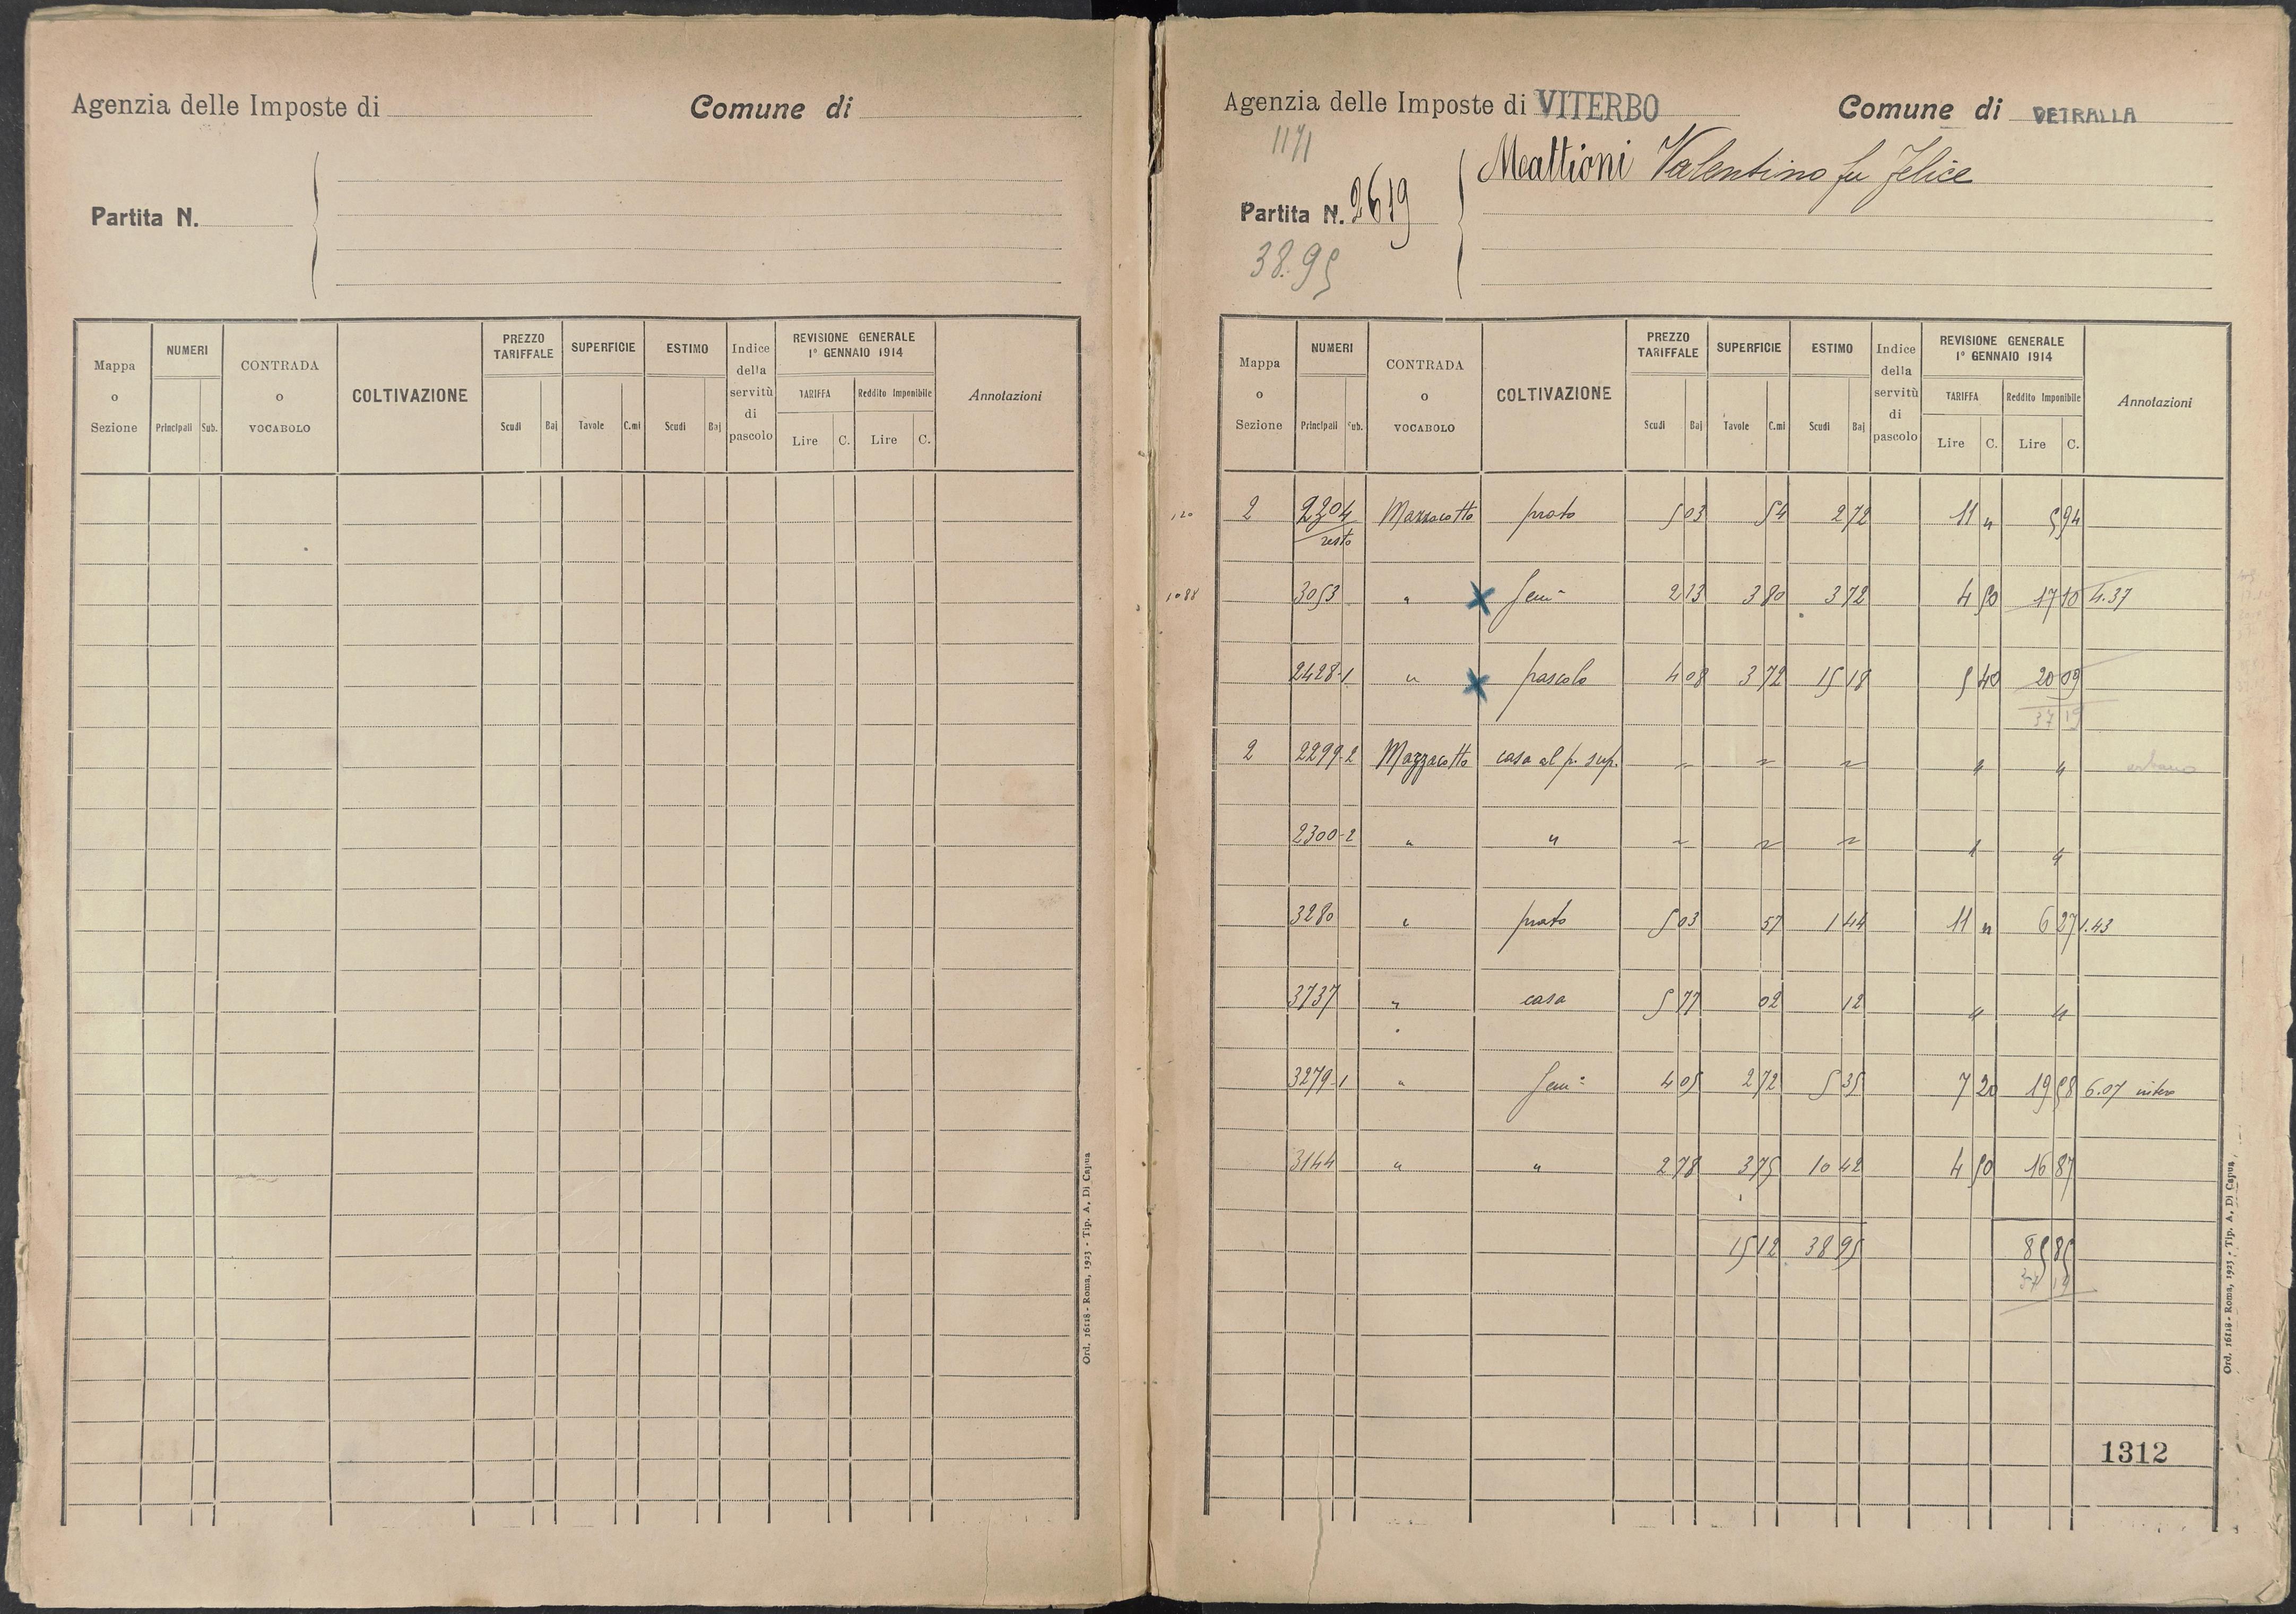 Agenzia delle Imposte di
Comune di
Partita N.
Mappa o Sezione | NUMERI Principali Sub. | CONTRADA o VOCABOLO | COLTIVAZIONE | PREZZO TARIFFALE Scudi Baj | SUPERFICIE Tavole C.mi | ESTIMO Scudi Baj | Indice della servitù di pascolo | REVISIONE GENERALE 1° GENNAIO 1914 TARIFFA Lire C. Reddito Imponibile Lire C. | Annotazioni
Ord. 16118 - Roma, 1923 - Tip. A. Di Capua
Agenzia delle Imposte di VITERBO
Comune di VETRALLA
1171
Mattioni Valentino fu Felice
Partita N. 2619
38.95
Mappa o Sezione | NUMERI Principali Sub. | CONTRADA o VOCABOLO | COLTIVAZIONE | PREZZO TARIFFALE Scudi Baj | SUPERFICIE Tavole C.mi | ESTIMO Scudi Baj | Indice della servitù di pascolo | REVISIONE GENERALE 1° GENNAIO 1914 TARIFFA Lire C. Reddito Imponibile Lire C. | Annotazioni
120 2 2304 Mazzacotto prato 5 03 54 2 72 11 " 5 94
resto
1088 3053 " Sem° 2 13 3 80 3 72 4 50 17 10 4.37
2428-1 " pascolo 4 08 3 72 15 18 5 40 20 09
37 19
2 2299-2 Mazzacotto casa al p. sup. " " " " " urbano
2300-2 " " " " " " "
3280 " prato 5 03 57 1 44 11 " 6 27 1.43
3737 " casa 5 77 02 12 " "
3279-1 " Sem° 4 05 2 72 5 35 7 20 19 58 6.07 intero
3144 " " 2 78 3 75 10 42 4 50 16 87
15 12 38 95 85 85
37 19
1312
Ord. 16118 - Roma, 1923 - Tip. A. Di Capua